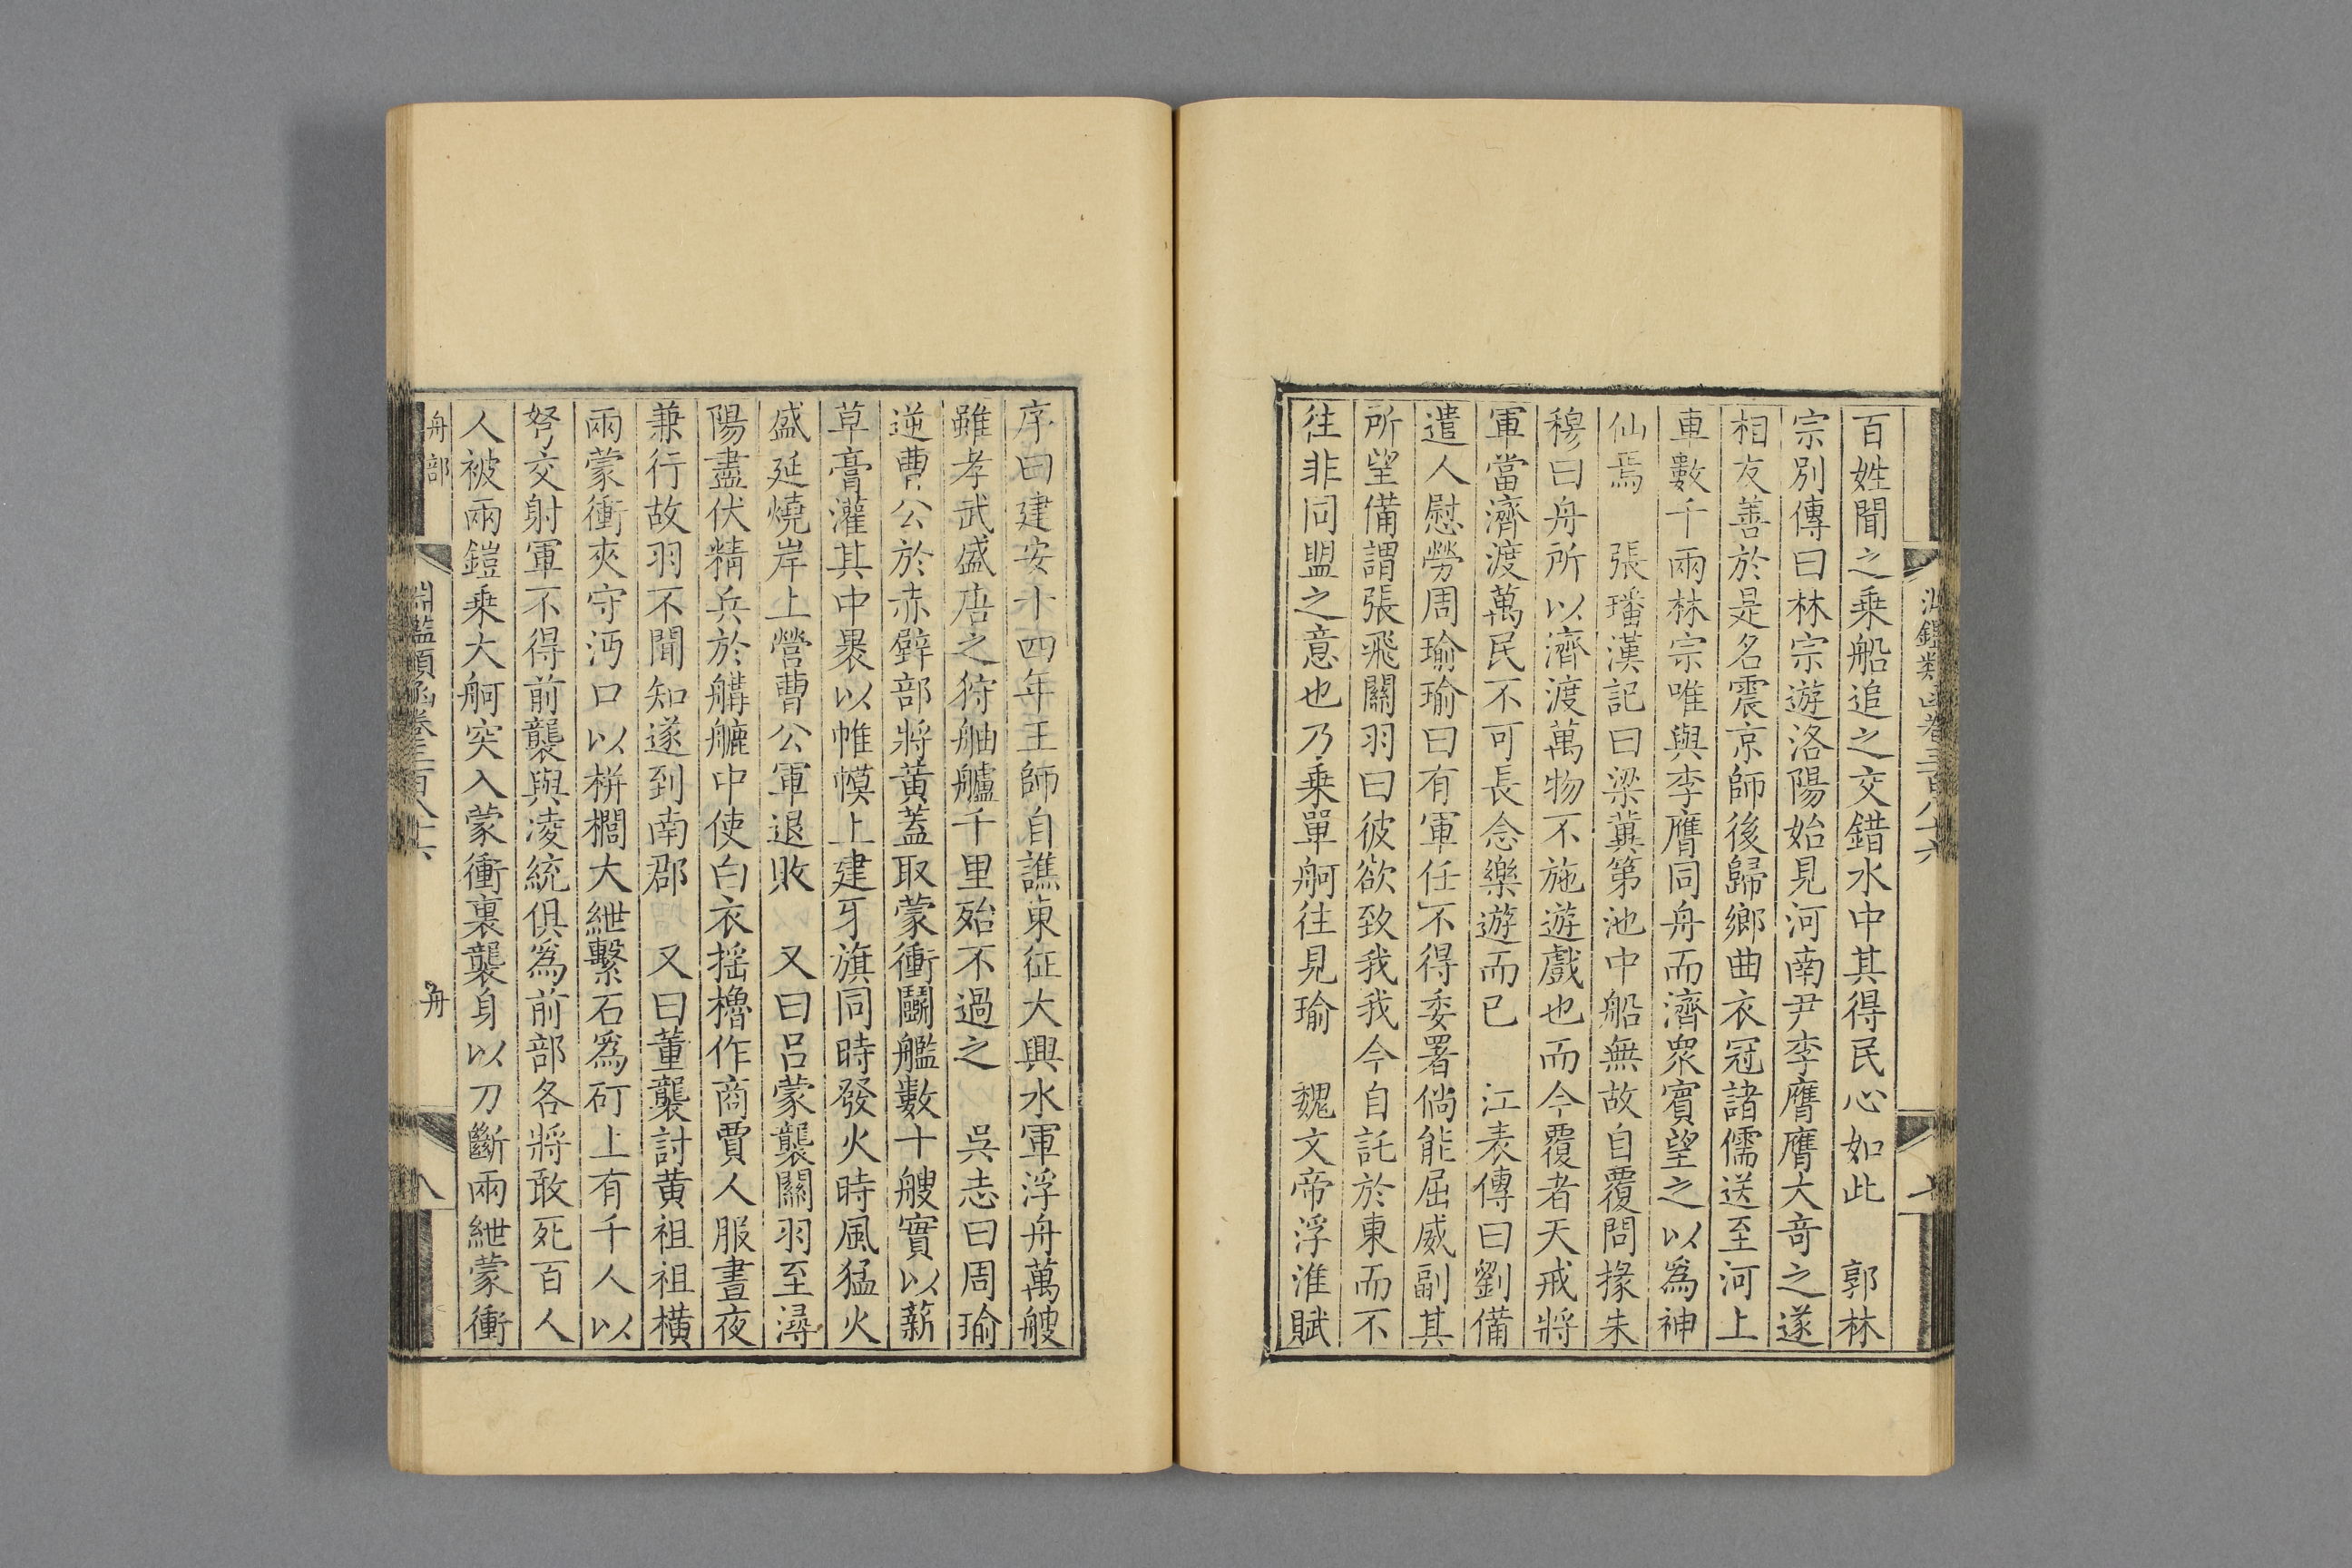 淵鑑類函卷三百八十六
七
百姓聞之乘船追之交錯水中其得民心如此　郭林
宗別傳曰林宗遊洛陽始見河南尹李膺膺大竒之遂
相友善於是名震京師後歸鄉曲衣冠諸儒送至河上
車數千兩林宗唯與李膺同舟而濟眾賓望之以爲神
仙焉　張璠漢記曰梁冀第池中船無故自覆問掾朱
穆曰舟所以濟渡萬物不施遊戲也而今覆者天戒將
軍當濟渡萬民不可長念樂遊而已　江表傳曰劉備
遣人慰勞周瑜瑜曰有軍任不得委署倘能屈威副其
所望備謂張飛關羽曰彼欲致我我今自託於東而不
往非同盟之意也乃乘單舸往見瑜　魏文帝浮淮賦
序曰建安十四年王師自譙東征大興水軍浮舟萬艘
雖孝武盛唐之狩舳艫千里殆不過之　吳志曰周瑜
逆曹公於赤壁部將黃蓋取蒙衝鬭艦數十艘實以薪
草膏灌其中裹以帷幙上建牙旗同時發火時風猛火
盛延燒岸上營曹公軍退敗　又曰呂蒙襲關羽至潯
陽盡伏精兵於艜𦪇中使白衣搖櫓作商賈人服晝夜
兼行故羽不聞知遂到南郡　又曰董襲討黃祖祖橫
兩蒙衝夾守沔口以栟櫚大紲繫石爲矴上有千人以
弩交射軍不得前襲與凌統俱爲前部各將敢死百人
人被兩鎧乘大舸突入蒙衝裏襲身以刀斷兩紲蒙衝
舟部
淵鑑類函卷三百八十六
舟
八